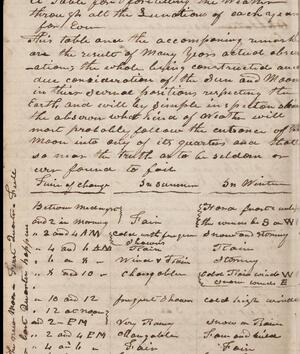 A Table for Foretelling the Weather
through all the Lunations of each year
for Ever
This table and the accompaning remark
are the result of Many Years actual obser
vations the whole being constructed on a
due consideration of the Sun and Moon
in their several positions respecting the
Earth and will by simple inspection show
the observer what kind of Weather will
most probably follow the entrance of the
Moon into any of its quarters and that
so near the truth as to be seldom or
ever found to fail
Time of change In Summer In Winter
Between Midnight
and 2 in Morning Fair
the wind be N or W
" 2 and 4 AM Cold with frequent Showers Snow and Stormy
" 4 and 6 AM Rain Rain
" 6 " 8 " Wind & Rain Stormy
" 8 and 10 " Changable Cold Rain wind W
snow wind E
" 10 and 12 frequent Showers Cold high winds
" 12 at noon
and 2 PM Very Rainy Snow or Rain
" 2 and 4 PM Changable
" 4 and 6 " Fair Fair